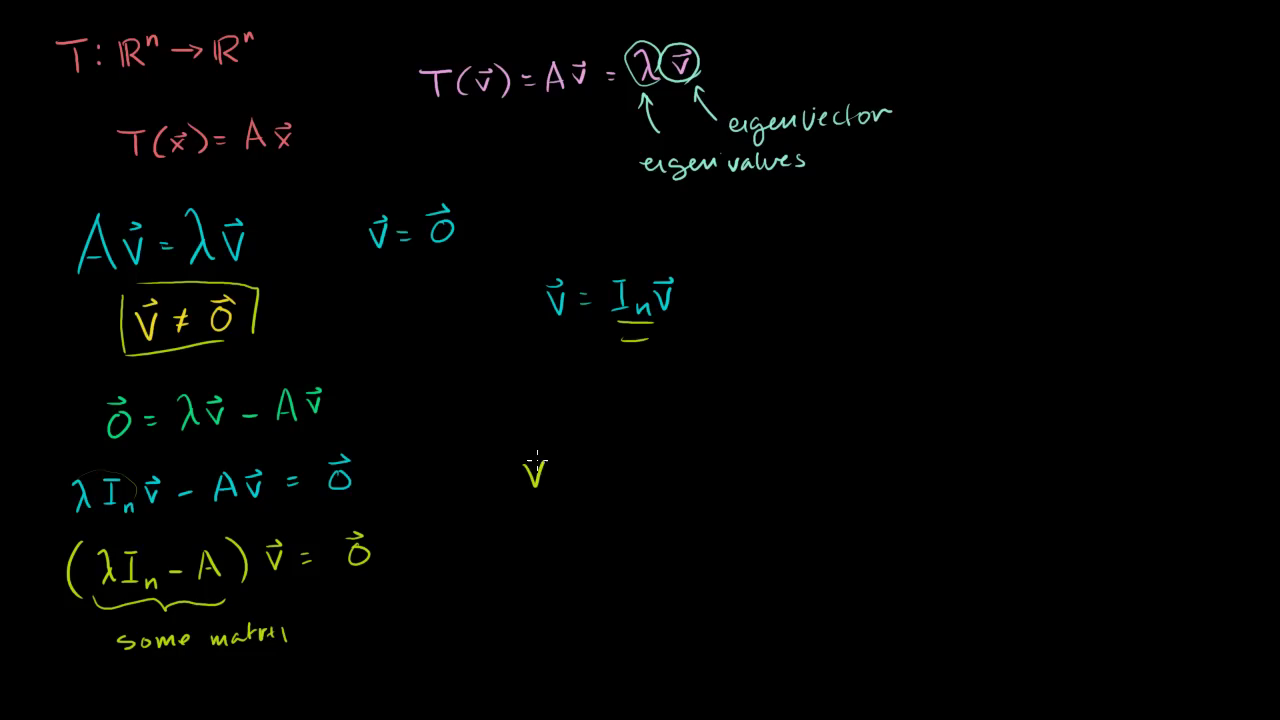 T: ℝⁿ → ℝⁿ
T(v⃗) = Av⃗ = λv⃗
eigenvector
eigenvalues
T(x⃗) = Ax⃗
Av⃗ = λv⃗
v⃗ = 0⃗
v⃗ ≠ 0⃗
v⃗ = Iₙv⃗
0⃗ = λv⃗ - Av⃗
λIₙv⃗ - Av⃗ = 0⃗
v
(λIₙ - A)v⃗ = 0⃗
some matrix